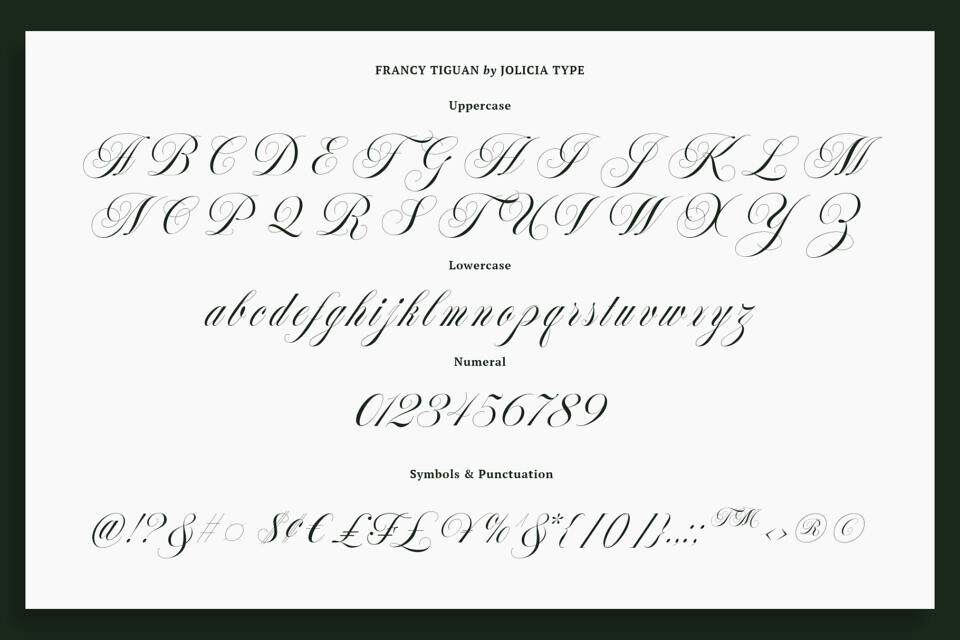 FRANCY TIGUAN by JOLICIA TYPE
Uppercase
A B C D E F G H I J K L M
N O P Q R S T U V W X Y Z
Lowercase
a b c d e f g h i j k l m n o p q r s t u v w x y z
Numeral
0 1 2 3 4 5 6 7 8 9
Symbols & Punctuation
@ ! ? & # ¤ $ ¢ € £ ₣ £ ¥ % ^ & * { / ( ) / } . . , : ; ™ < > ® ©